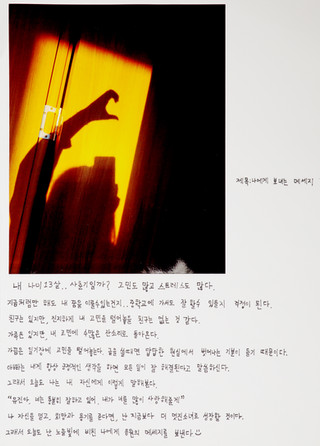 제목:나에게 보내는 메세지
내 나이 13살.. 사춘기일까? 고민도 많고 스트레스도 많다.
지금처럼만 해도 내 꿈을 이룰수있는건지.. 중학교에 가서도 잘 할수 있을지 걱정이 된다.
친구는 있지만, 진지하게 내 고민을 털어놓을 친구는 없는 것 같다.
가족은 있지만, 내 고민에 수많은 잔소리로 돌아온다.
가끔은 일기장에 고민을 털어놓는다. 글을 쓸때면 답답한 현실에서 벗어나는 기분이 들기 때문이다.
아빠는 내게 항상 긍정적인 생각을 하면 모든 일이 잘 해결된다고 말씀하신다.
그래서 오늘도 나는 내 자신에게 이렇게 말해본다.
너는 충분히 잘하고 있어, 내가 너를 많이 사랑해줄게"
나 자신을 믿고, 희망과 용기를 준다면, 난 지금보다 더 멋진소녀로 성장할 것이다.
그래서 오늘도 난 노을빛에 비친 나에게 응원의 메세지를 보낸다